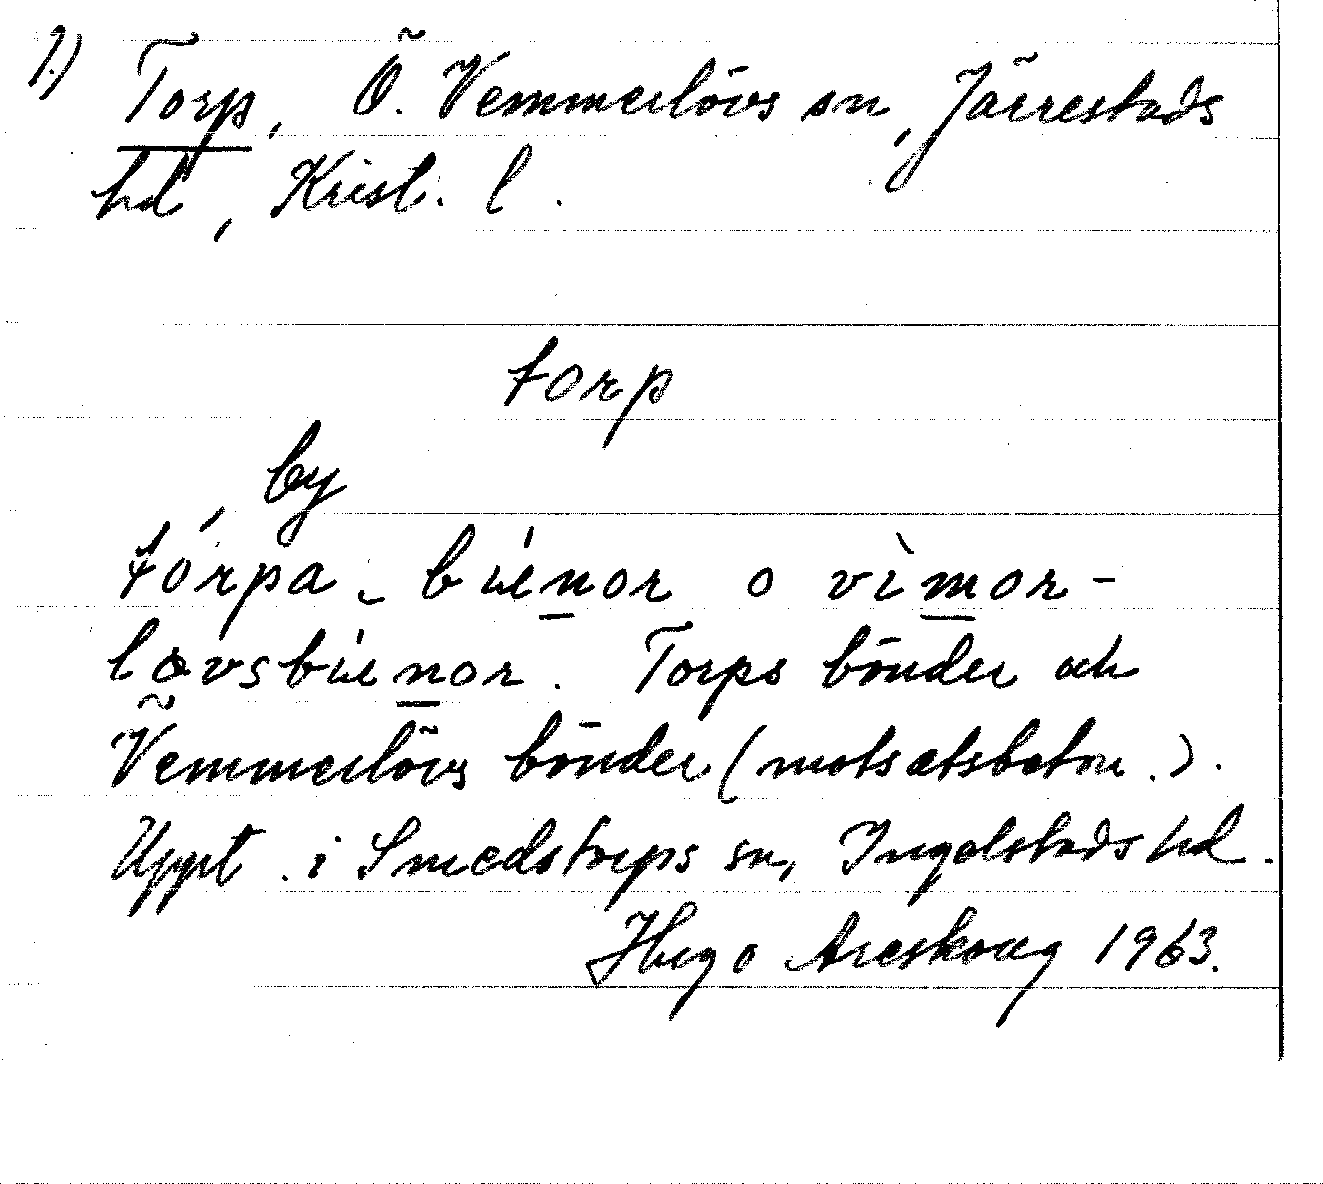 1) Torp, Ö. Vemmerlövs sn, Järrestads
hd, Krist. l.
torp
by
tórpa - búenor o vìmor-
løvsbúenor. Torps bönder och
Ö Vemmerlövs bönder (motsatsbeton.).
Uppt. i Smedstorps sn, Ingelstads hd.
Hugo Areskoug 1963.